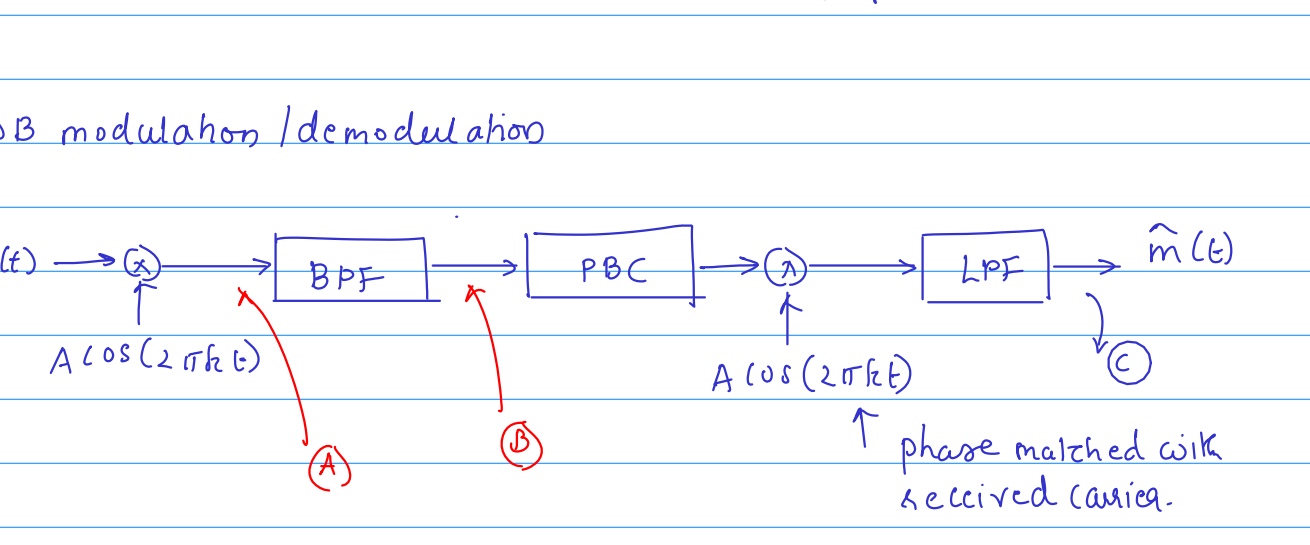 B modulation/demodulation
(t) x BPF PBC x LPF m̂(t)
A cos(2πfct) A cos(2πfct) C
A B phase matched with
received carrier.